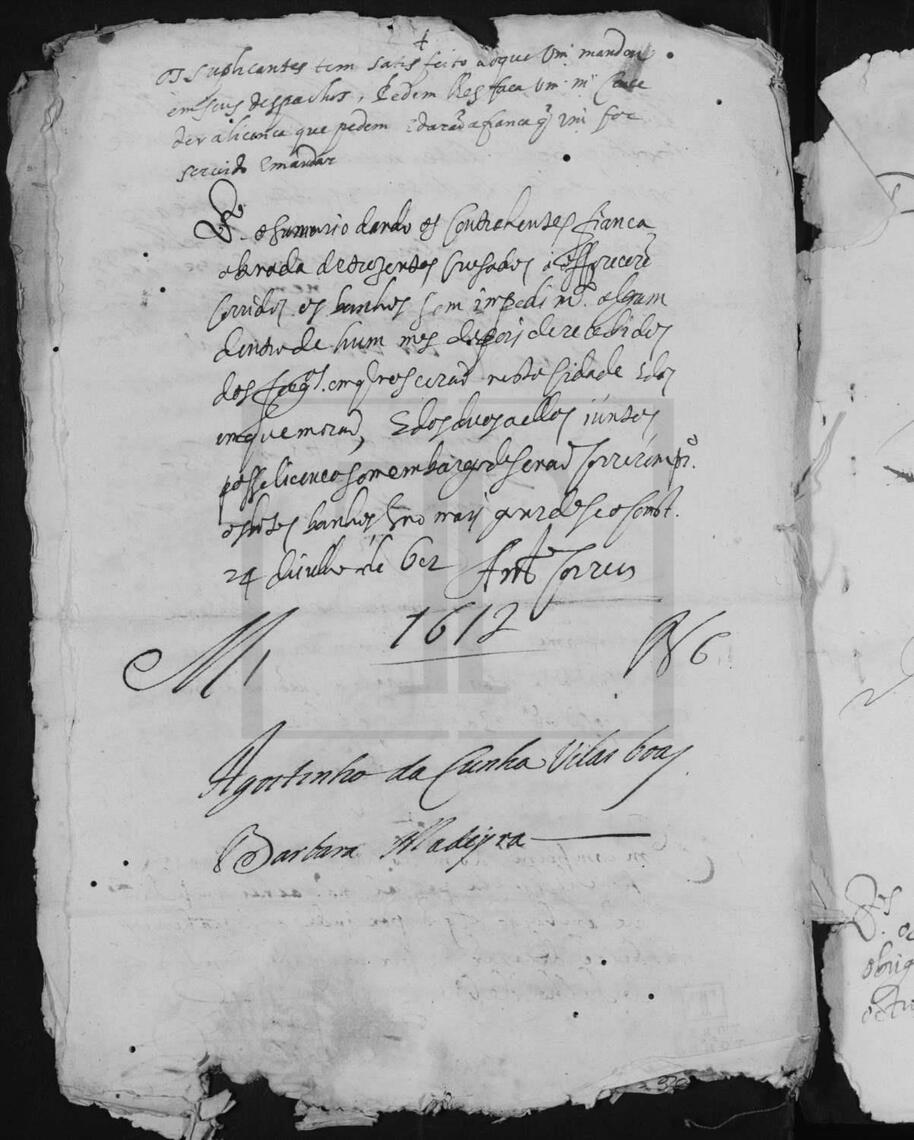 os suplicantes tem satisfeito ao que Vm. mandou
em seus despachos, Pedem lhes faca Vm. m. Conce
der a licenca que pedem e darão a fianca q Vm for
servido e mandar
o sumario dando os Contrahentes fianca
de trezentos Crusados a offerecerẽ
Corridos os banhos sem impedim.to algum
dentro de hum mes depois de recebidos
dos em q nascerão nesta Cidade e dos
em que morão, e dos avos aelles juntos
passe licenca sem embargo de senão Correrem pr.o
os ditos banhos e no mais guardese o Const.
24 de julho de 612 Ant.o Correa
1612
M 1 N 6
Agostinho da Cunha Vilas boas
Barbara Madeyra